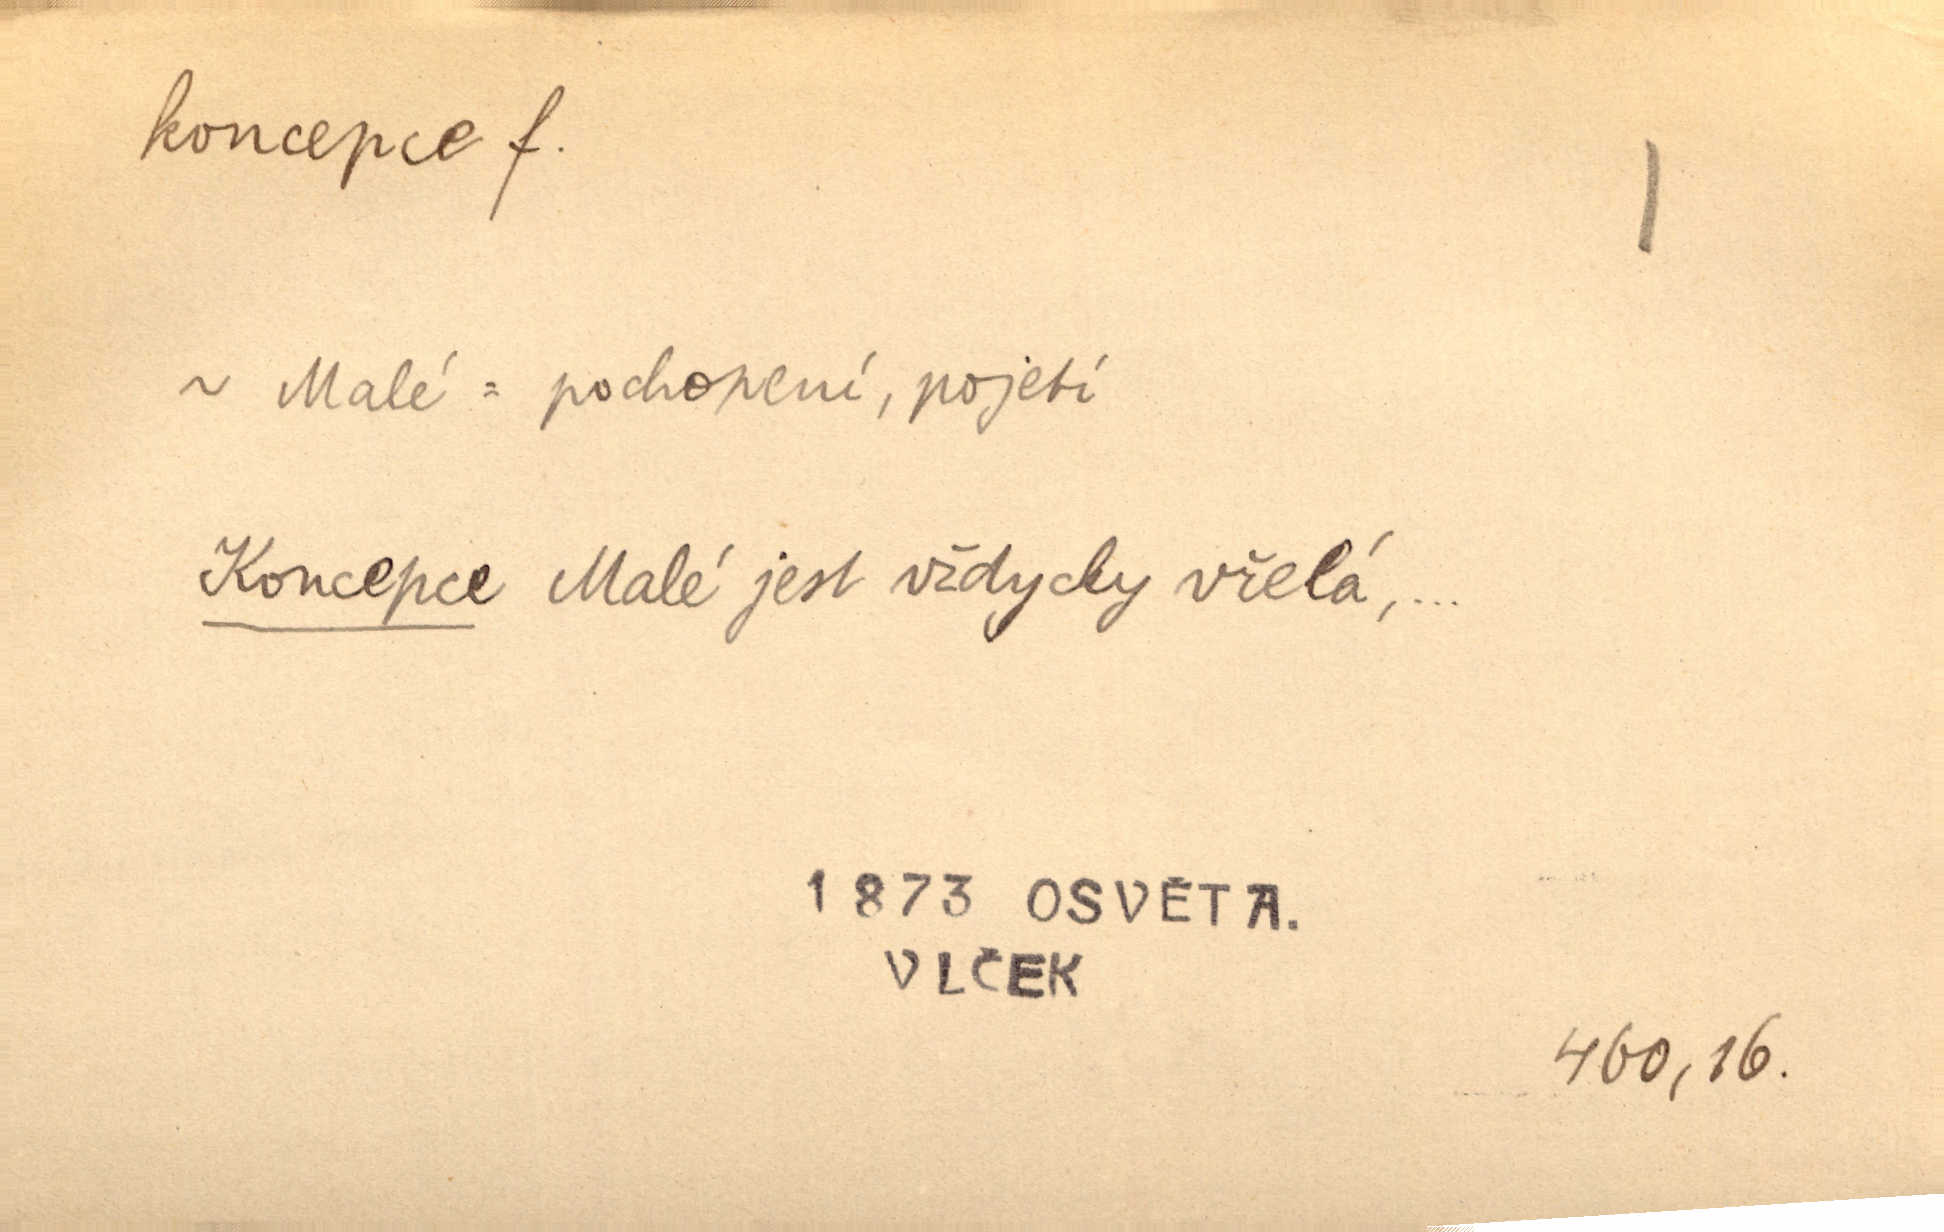 koncepce f.
~ Malé = pochopení, pojetí
Koncepce Malé jest vždycky vřelá,...
1873 OSVĚTA.
VLČEK
460,16.